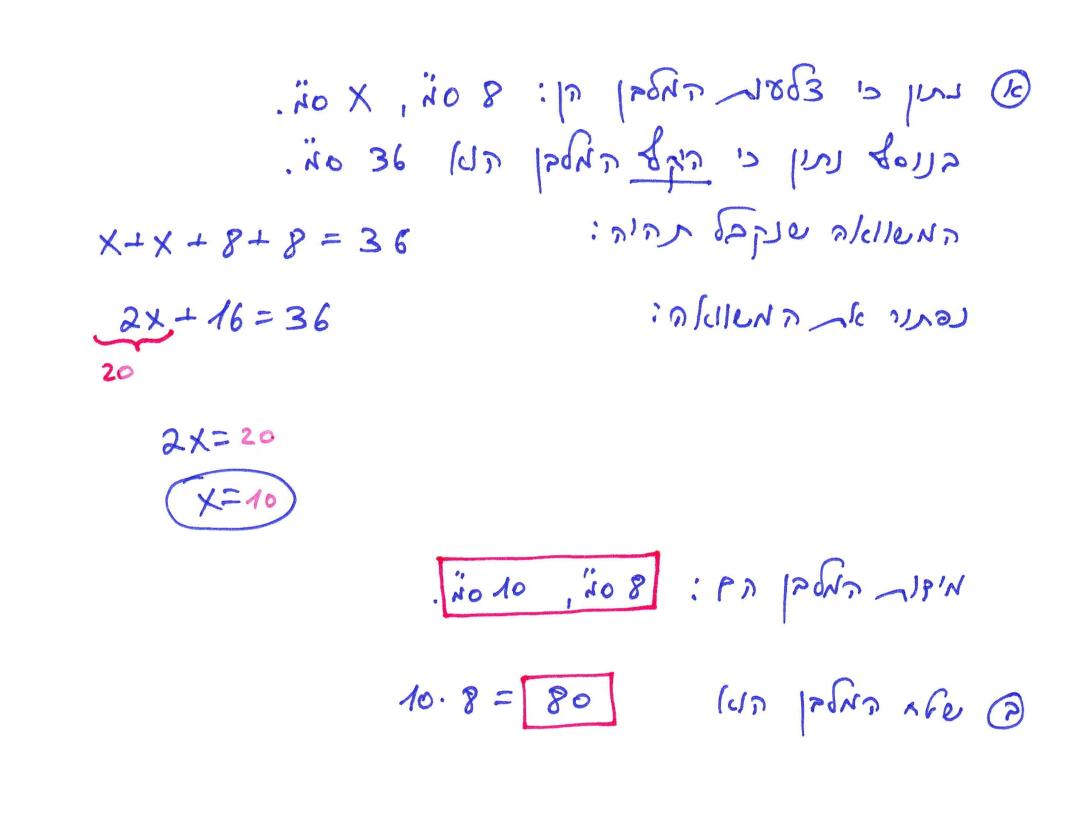 א נתון כי צלעות המלבן הן: 8 ס"מ, x ס"מ.
בנוסף נתון כי היקף המלבן הוא 36 ס"מ.
המשוואה שנקבל תהיה: x+x+8+8=36
נפתור את המשוואה: 2x+16=36
20
2x=20
x=10
מידות המלבן הם: 8 ס"מ, 10 ס"מ.
ב שטח המלבן הוא 10·8=80